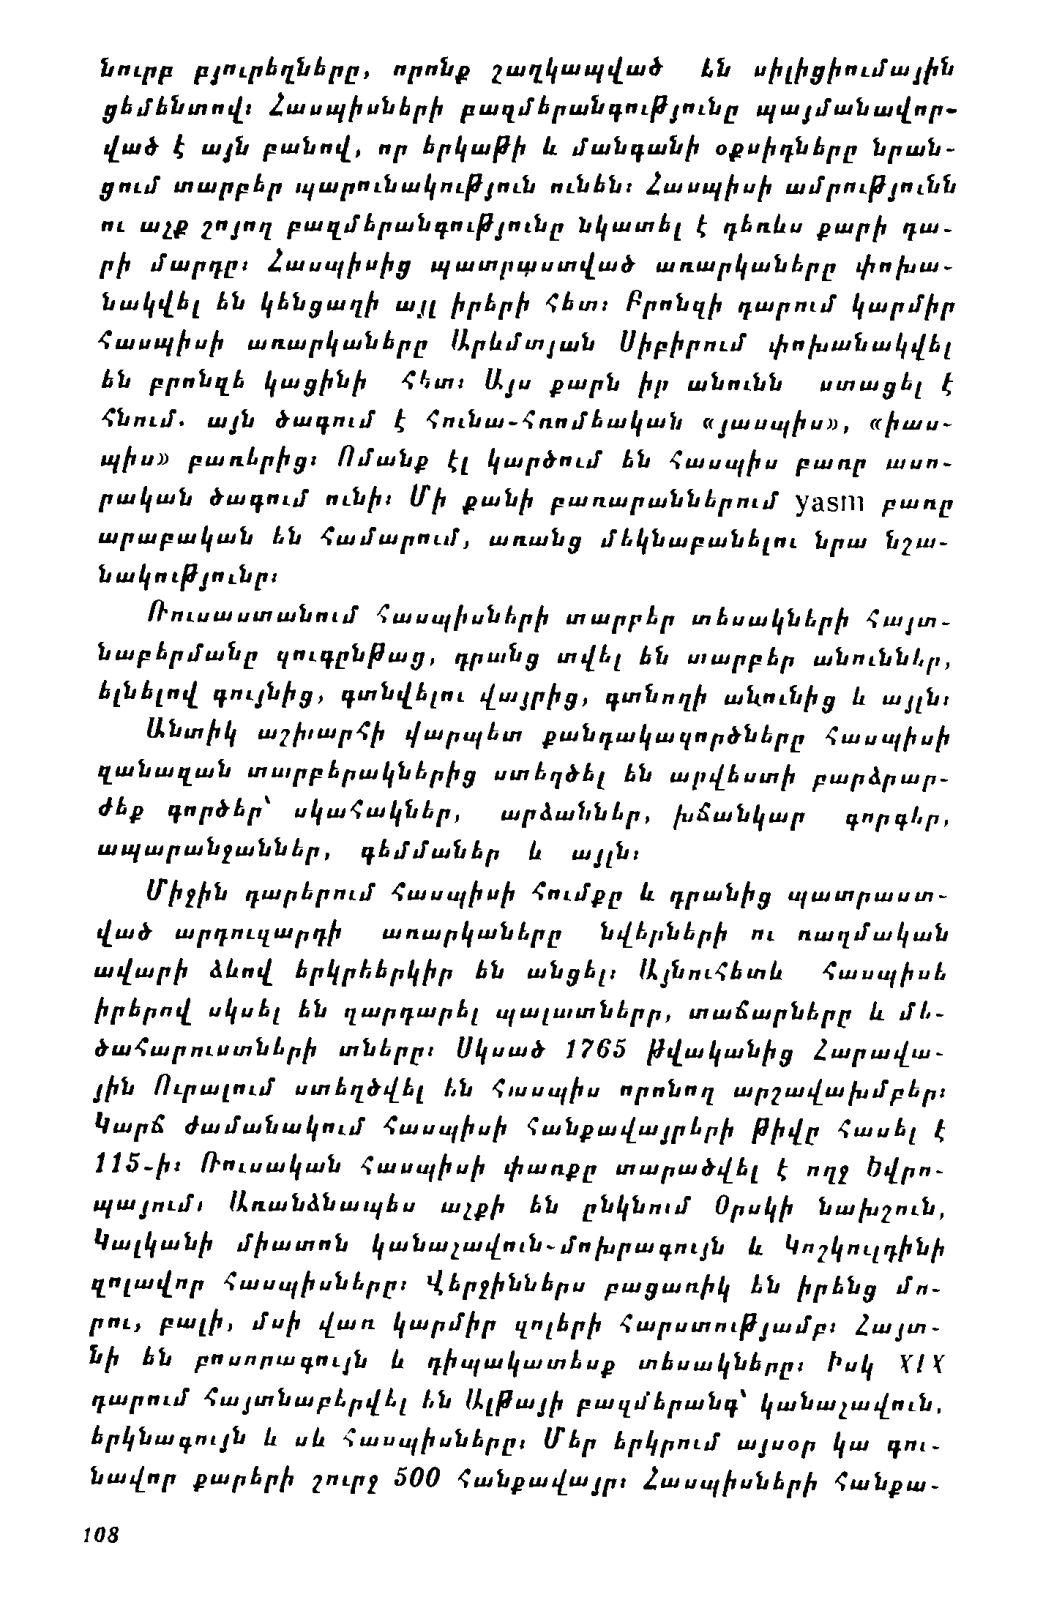 նուրբ բյուրեղները, որոնք շաղկապված են սիլիցիումային
ցեմենտով։ Հասպիսների բազմերանգությունը պայմանավոր-
ված է այն բանով, որ երկաթի և մանգանի օքսիդները նրան-
ցում տարբեր պարունակություն ունեն։ Հասպիսի ամրությունն
ու աչք շոյող բազմերանգությունը նկատել է դեռևս քարի դա-
րի մարդը։ Հասպիսից պատրաստված առարկաները փոխա-
նակվել են կենցաղի այլ իրերի հետ։ Բրոնզի դարում կարմիր
հասպիսի առարկաները Արևմտյան Սիբիրում փոխանակվել
են բրոնզե կացինի հետ։ Այս քարն իր անունն ստացել է
հնում. այն ծագում է հունա-հռոմեական «յասպիս», «իաս-
պիս» բառերից։ Ոմանք էլ կարծում են հասպիս բառը ասո-
րական ծագում ունի։ Մի քանի բառարաններում yasm բառը
արաբական են համարում, առանց մեկնաբանելու նրա նշա-
նակությունը։
Ռուսաստանում հասպիսների տարբեր տեսակների հայտ-
նաբերմանը զուգընթաց, դրանց տվել են տարբեր անուններ,
ելնելով գույնից, գտնվելու վայրից, գտնողի անունից և այլն։
Անտիկ աշխարհի վարպետ քանդակագործները հասպիսի
զանազան տարբերակներից ստեղծել են արվեստի բարձրար-
ժեք գործեր՝ սկահակներ, արձաններ, խճանկար գորգեր,
ապարանջաններ, գեմմաներ և այլն։
Միջին դարերում հասպիսի հումքը և դրանից պատրաստ-
ված արդուզարդի առարկաները նվերների ու ռազմական
ավարի ձևով երկրեերկիր են անցել։ Այնուհետև հասպիսե
իրերով սկսել են զարդարել պալատները, տաճարները և մե-
ծահարուստների տները։ Սկսած 1765 թվականից Հարավա-
յին Ուրալում ստեղծվել են հասպիս որոնող արշավախմբեր։
Կարճ ժամանակում հասպիսի հանքավայրերի թիվը հասել է
115-ի։ Ռուսական հասպիսի փառքը տարածվել է ողջ Եվրո-
պայում։ Առանձնապես աչքի են ընկնում Օրսկի նախշուն,
Կալկանի միատոն կանաչավուն-մոխրագույն և Կոշկուլդինի
զոլավոր հասպիսները։ Վերջիններս բացառիկ են իրենց մո-
րու, բալի, մսի վառ կարմիր զոլերի հարստությամբ։ Հայտ-
նի են բոսորագույն և դիպակատեսք տեսակները։ Իսկ XIX
դարում հայտնաբերվել են Ալթայի բազմերանգ՝ կանաչավուն,
երկնագույն և սև հասպիսները։ Մեր երկրում այսօր կա գու-
նավոր քարերի շուրջ 500 հանքավայր։ Հասպիսների հանքա-
108